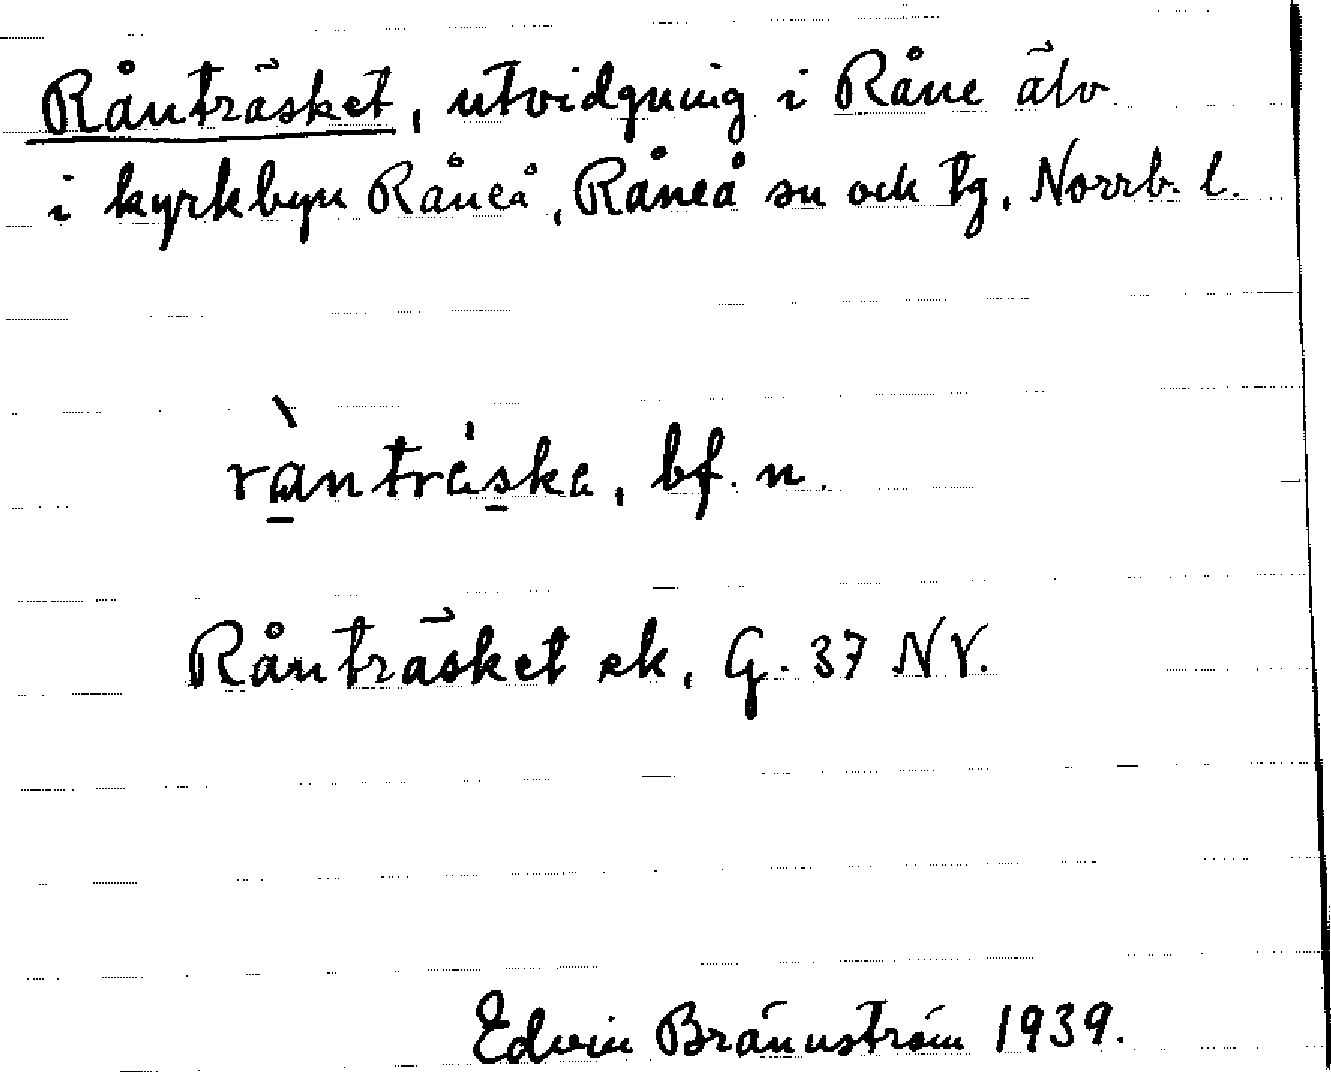 Rånträsket, utvidgning i Råne älv
i kyrkbyn Råneå, Råneå sn och tg, Norrb. l.
rànträ́ska, bf. n.
Rånträsket ek, G. 37 NV.
Edvin Brännström 1939.